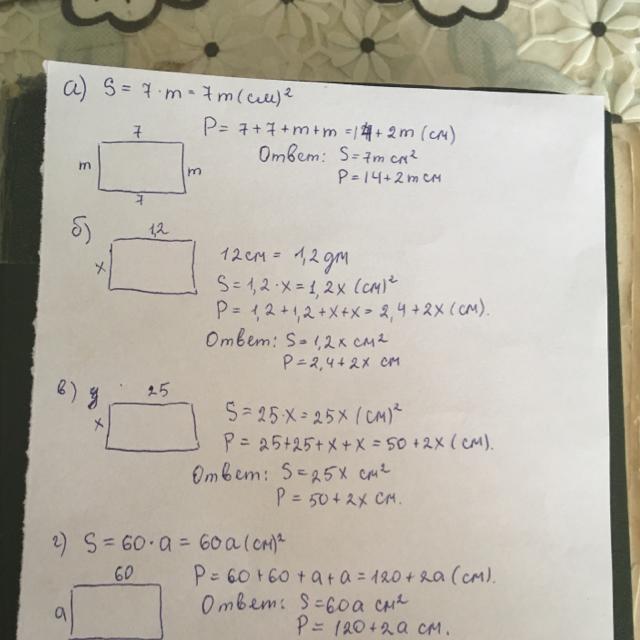 а) S = 7 · m = 7m (см)²
7
P = 7 + 7 + m + m = 14 + 2m (см)
m
m
Ответ: S = 7m см²
7
P = 14 + 2m см
б)
1,2
x
12 см = 1,2 дм
S = 1,2 · x = 1,2x (см)²
P = 1,2 + 1,2 + x + x = 2,4 + 2x (см).
Ответ: S = 1,2x см²
P = 2,4 + 2x см
в) у 25
x
S = 25 · x = 25x (см)²
P = 25 + 25 + x + x = 50 + 2x (см).
Ответ: S = 25x см²
P = 50 + 2x см.
г) S = 60 · a = 60a (см)²
60
a
P = 60 + 60 + a + a = 120 + 2a (см).
Ответ: S = 60a см²
P = 120 + 2a см.